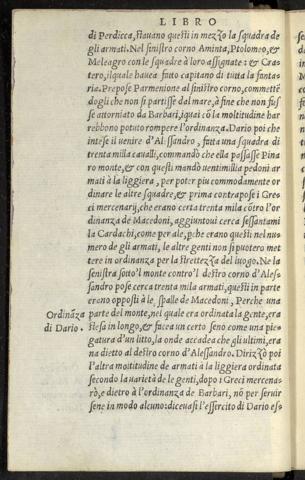 LIBRO
di Perdicca, stauano questi in mezzo la squadra de
gli armati. Nel sinistro corno Aminta, Ptolomeo, &
Meleagro con le squadre à loro assignate: & Cra=
tero, ilquale hauea fatto capitano di tutta la fanta=
ria. Prepose Parmenione al sinistro corno, commettē
dogli che non si partisse dal mare, à fine che non fus
se attorniato da Barbari, iquai cō la moltitudine har
rebbono potuto rompere l'ordinanza. Dario poi che
intese il uenire d'Alessandro, fatta una squadra di
trentamilla caualli, commandò che ella passasse Pina
ro monte, & con questi mandò uentimillia pedoni ar
mati à la liggiera, per poter piu commodamente or
dinare le altre squadre, & prima contrapose i Gre=
ci mercenarij, che erano cerca trenta mila cōtro l'or
dinanza de Macedoni, aggiuntoui cerca sessantami
la Cardachi, come per ale, pche erano questi nel nu=
mero de gli armati, le altre genti non si puotero met
tere in ordinanza per la strettezza del luogo. Ne la
senistra sotto'l monte contro'l destro corno d'Ales=
sandro pose cerca trenta mila armati, questi in parte
erano opposti à le spalle de Macedoni, Perche una
parte del monte, nel quale era ordinata la gente, era
stesa in longo, & facea un certo seno come una pie=
gatura d'un litto, la onde accadea che gli ultimi, era
no dietto al destro corno d'Alessandro. Dirizzò poi
l'altra moltitudine de armati à la liggiera ordinata
secondo la uarietà de le genti, dopo i Greci mercena=
rò, e dietro à l'ordinanza de Barbari, nō per seruir
sene in modo alcuno: diceuasi l'essercito di Dario es=
Ordinãza
di Dario.